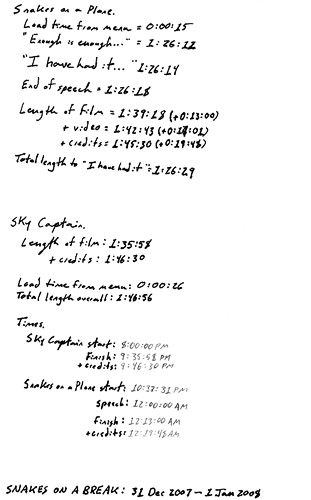 Snakes on a Plane.
Load time from menu = 0:00:15
"Enough is enough..." = 1:26:11
"I have had it..." 1:26:14
End of speech = 1:26:18
Length of Film = 1:39:18 (+0:13:00)
+ video = 1:42:43 (+0:18:01)
+ credits = 1:45:30 (+0:19:48)
Total length to "I have had it" = 1:26:29
Sky Captain.
Length of film: 1:35:58
+ credits: 1:46:30
Load time from menu: 0:00:26
Total length overall: 1:46:56
Times.
Sky Captain start: 8:00:00 PM
Finish: 9:35:58 PM
+credits: 9:46:30 PM
Snakes on a Plane start: 10:33:31 PM
Speech: 12:00:00 AM
Finish: 12:13:00 AM
+credits: 12:19:48 AM
SNAKES ON A BREAK: 31 Dec 2007 – 1 Jan 2008